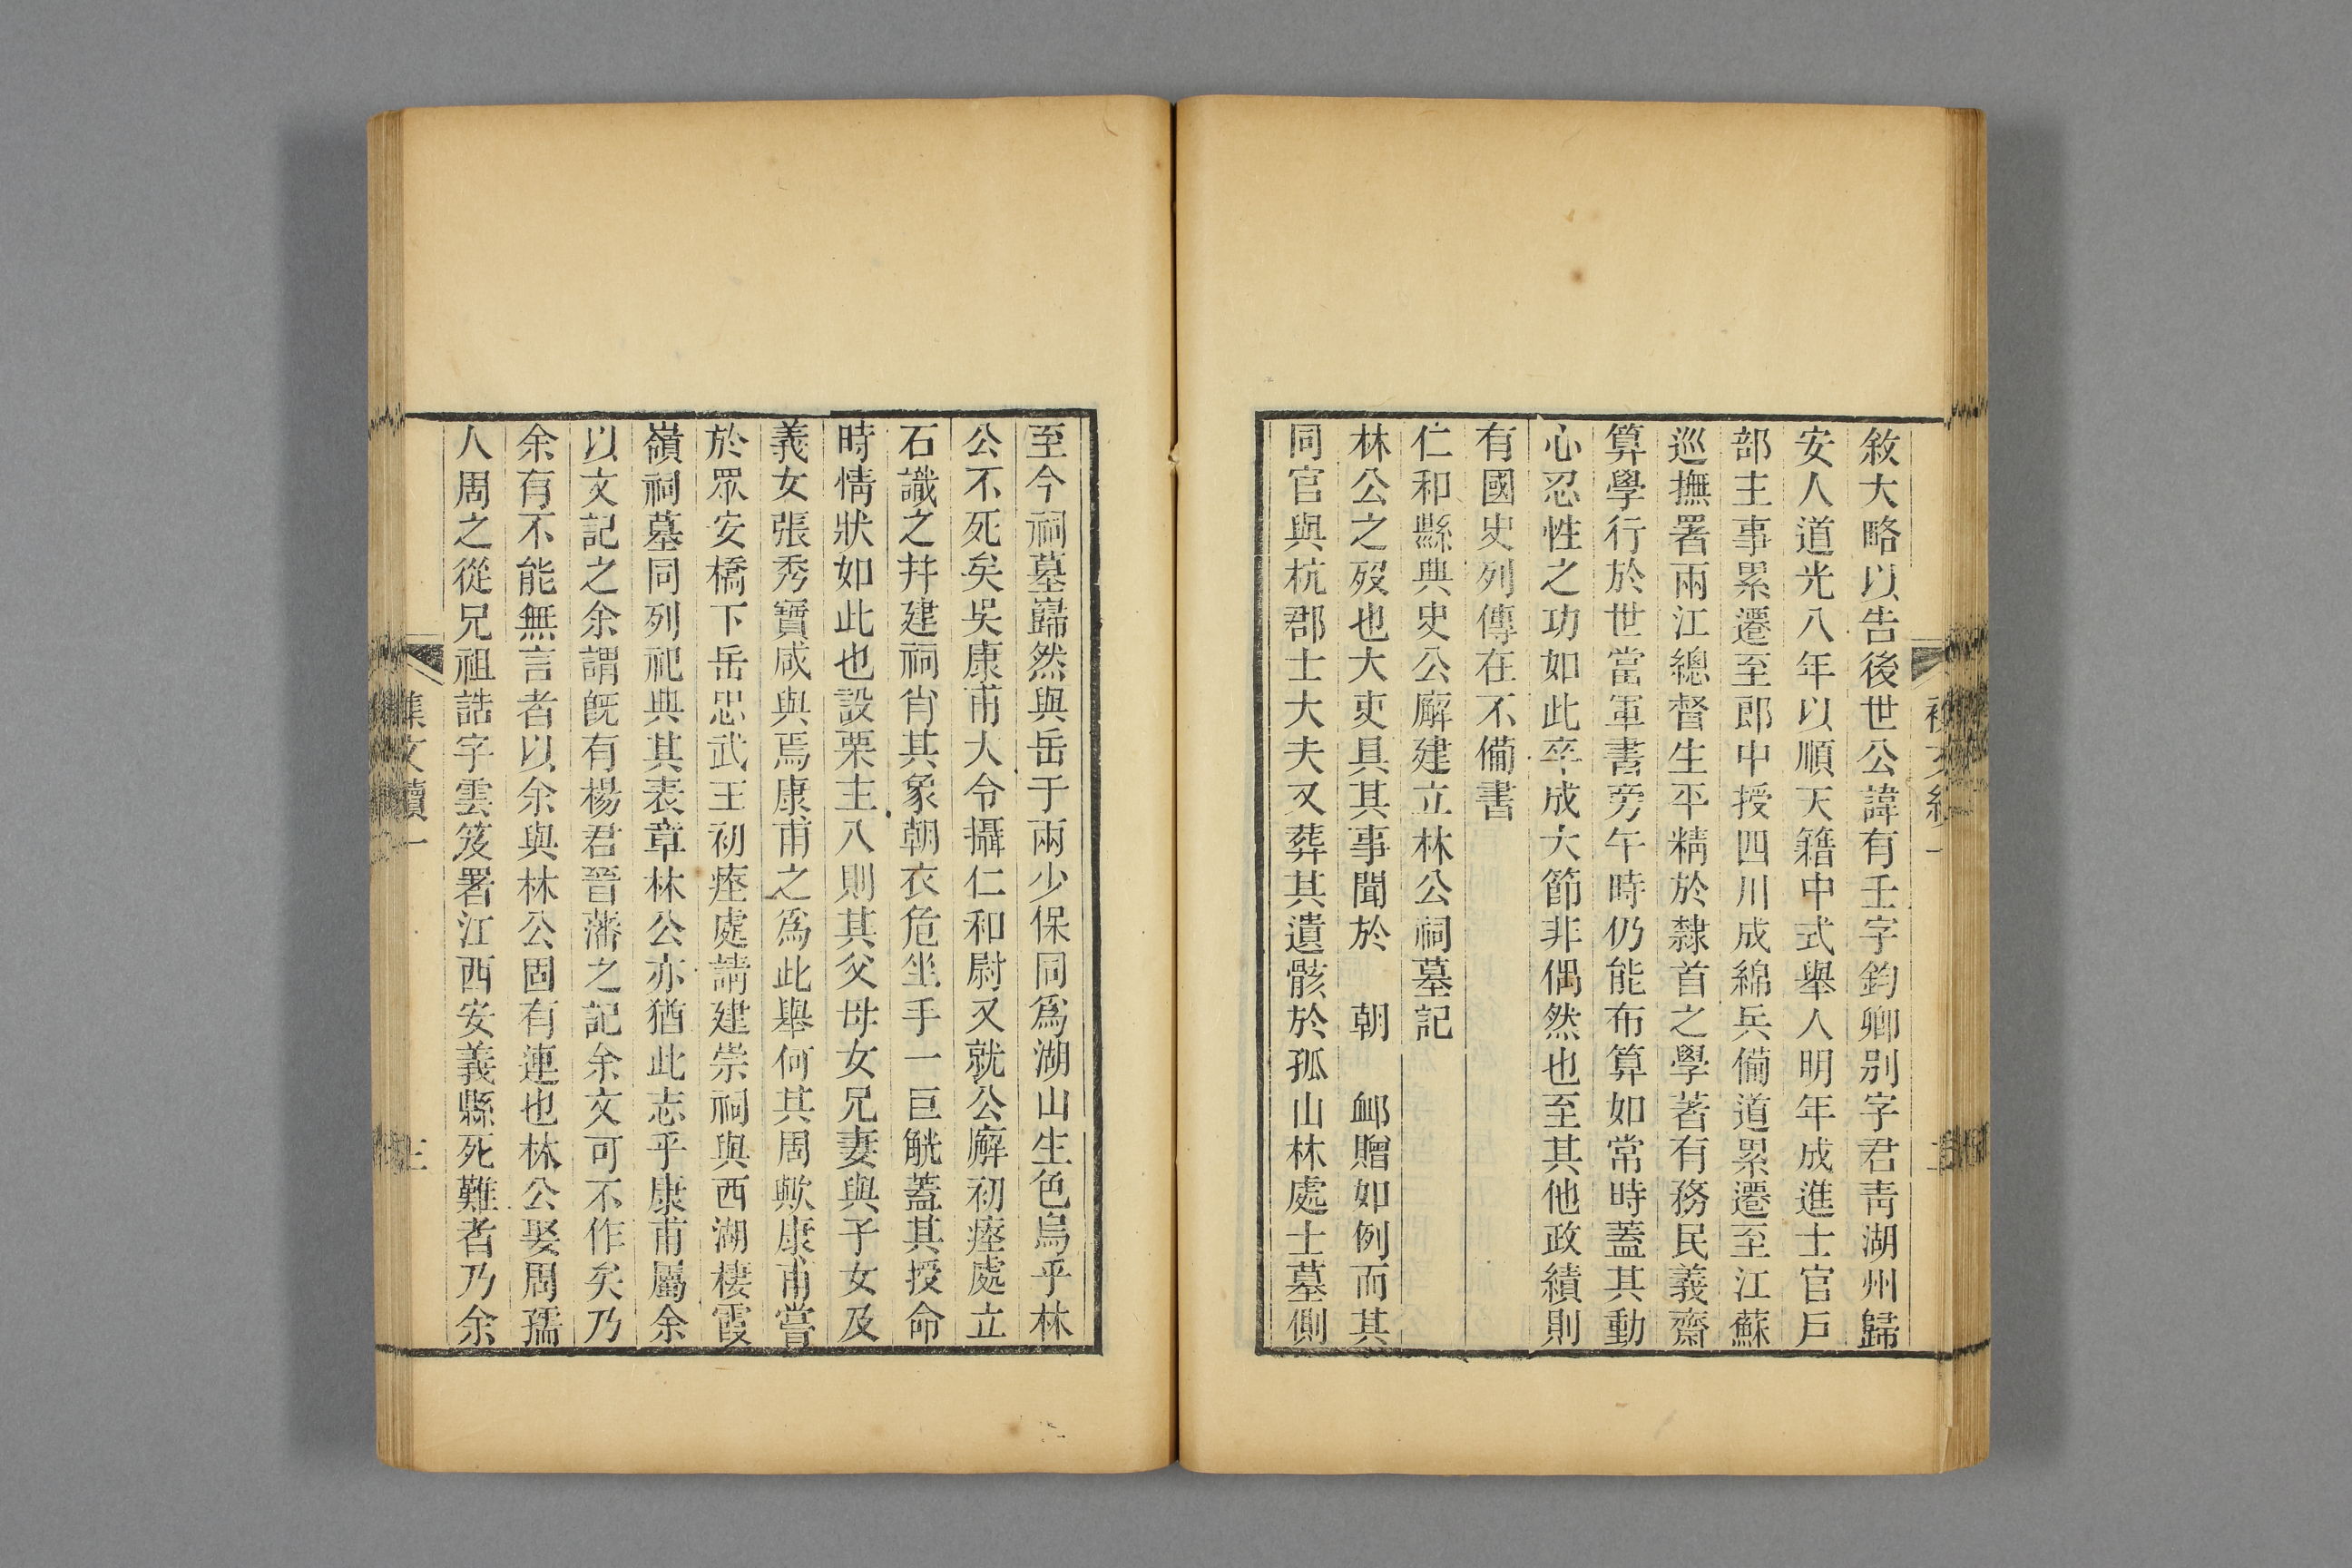 敘大略以告後世公諱有壬字鈞卿别字君靑湖州歸
安人道光八年以順天籍中式舉人明年成進士官戶
部主事累遷至郎中授四川成綿兵備道累遷至江蘇
巡撫署兩江總督生平精於隸首之學著有務民義齋
算學行於世當軍書旁午時仍能布算如常時蓋其動
心忍性之功如此卒成大節非偶然也至其他政績則
有國史列傳在不備書
仁和縣典史公廨建立林公祠墓記
林公之歿也大吏具其事聞於　朝　卹贈如例而其
同官與杭郡士大夫又葬其遺骸於孤山林處士墓側
至今祠墓巋然與岳于兩少保同爲湖山生色烏乎林
公不死矣吳康甫大令攝仁和尉又就公廨初瘞處立
石識之幷建祠肖其象朝衣危坐手一巨觥蓋其授命
時情狀如此也設栗主八則其父母女兄妻與子女及
義女張秀寶咸與焉康甫之爲此舉何其周歟康甫嘗
於眾安橋下岳忠武王初瘞處請建崇祠與西湖棲霞
嶺祠墓同列祀典其表章林公亦猶此志乎康甫屬余
以文記之余謂旣有楊君晉藩之記余文可不作矣乃
余有不能無言者以余與林公固有連也林公娶周孺
人周之從兄祖誥字雲笈署江西安義縣死難者乃余
文續一